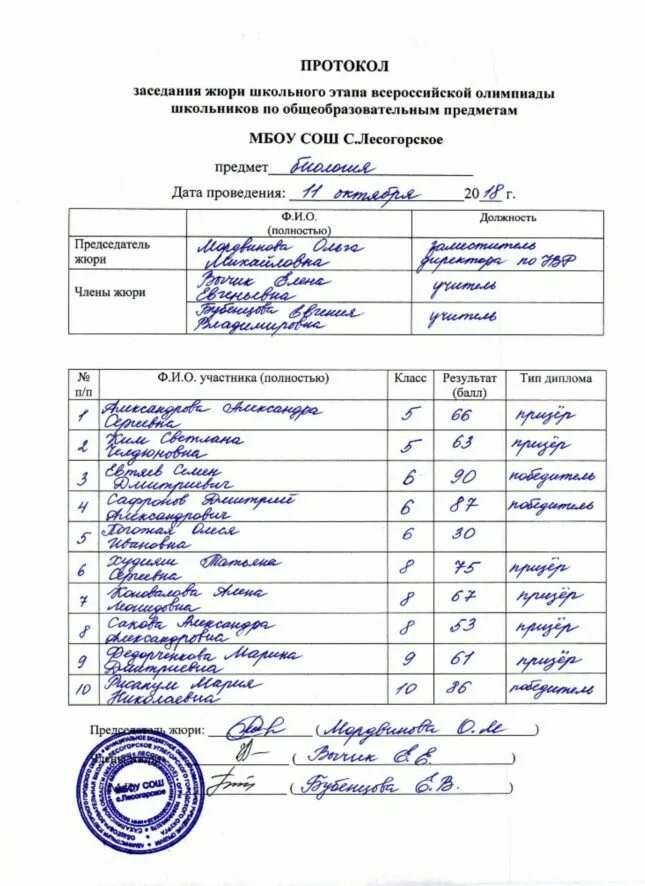 ПРОТОКОЛ
заседания жюри школьного этапа всероссийской олимпиады
школьников по общеобразовательным предметам
МБОУ СОШ С.Лесогорское
предмет биология
Дата проведения: 11 октября 2018 г.
Ф.И.О. (полностью) Должность
Председатель жюри Мордвинова Ольга Михайловна заместитель директора по УВР
Члены жюри Вычик Елена Евгеньевна учитель
Бубенцова Евгения Владимировна учитель
№ п/п Ф.И.О. участника (полностью) Класс Результат (балл) Тип диплома
1 Александрова Александра Сергеевна 5 66 призёр
2 Ким Светлана 5 63 призёр
3 Евтяев Семен Дмитриевич 6 90 победитель
4 Сафронов Дмитрий Александрович 6 87 победитель
5 Олеся Ивановна 6 30
6 Худияш Татьяна Сергеевна 8 75 призёр
7 Коновалова Алена Леонидовна 8 67 призёр
8 Сакова Александра Александровна 8 53 призёр
9 Федорченкова Марина Дмитриевна 9 61 призёр
10 Мария Николаевна 10 86 победитель
Председатель жюри: (Мордвинова О.М)
Члены жюри: (Вычик Е.Е.)
(Бубенцова Е.В.)
МБОУ СОШ
с.Лесогорское